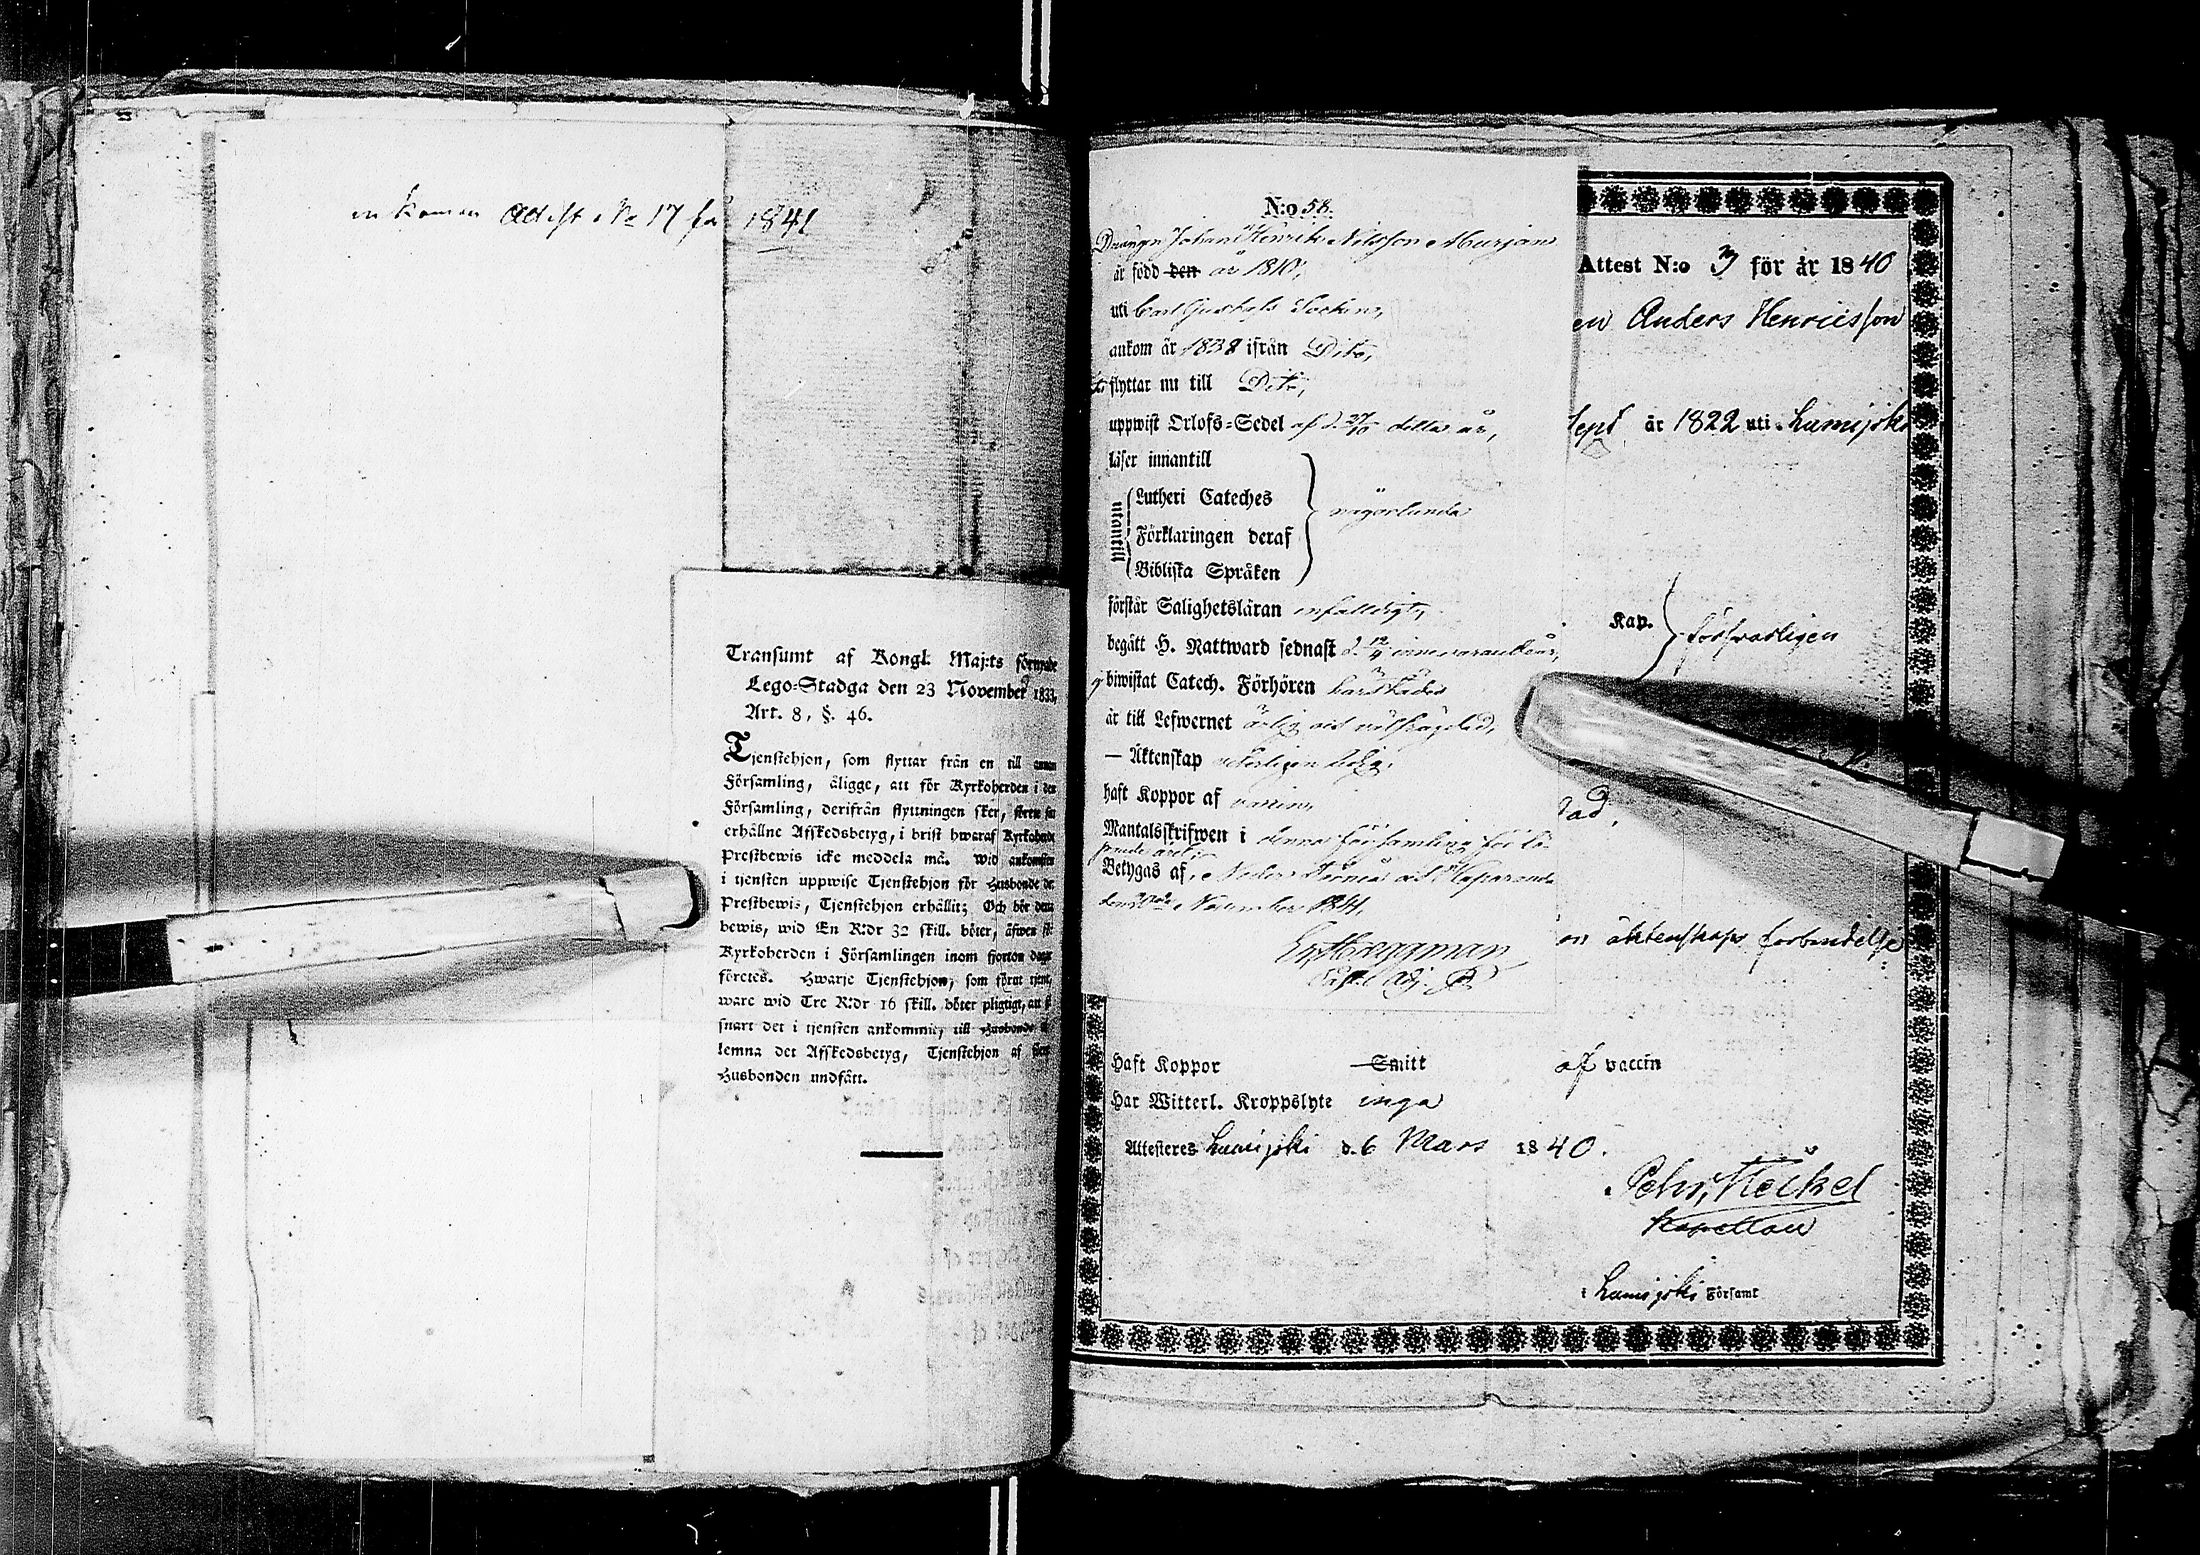 en komen Attest No 17 för 1841
Transumt af Kongl. Maj:ts förnyade
Lego-Stadga den 23 November 1833,
Art. 8, §. 46.
Tjenstehjon, som flyttar från en till annan
Församling, åligge, att för Kyrkoherden i den
Församling, derifrån flyttningen sker, förete sin
erhållne Afskedsbetyg, i brist hwaraf Kyrkoherde
Prestbewis icke meddela må. Wid ankomsten
i tjensten uppwise Tjenstehjon för Husbonde de
Prestbewis, Tjenstehjon erhållit; Och bör detta
bewis, wid En R:dr 32 skill. böter, äfwen för
Kyrkoherden i Församlingen inom fjorton dagar
företes. Hwarje Tjenstehjon, som förut tjent,
ware wid Tre R:dr 16 skill. böter pligtigt, att så
snart det i tjensten ankommit, till Husbonde
lemna det Afskedsbetyg, Tjenstehjon af förra
Husbonden undfått.
N:o 58.
Drängen Johan Henrik Nilsson Murjan
är född den år 1810,
uti Carl Gustafs Socken,
ankom år 1838 ifrån Dito,
flyttar nu till Dito,
uppwist Orlofs-Sedel af d. 27/10 detta år,
läser innantill
utantill
Lutheri Cateches
Förklaringen deraf
Bibliska Språken
någorlunda
förstår Salighetsläran enfaldigt,
begått H. Nattward sednast d. 12/9 innevarande år,
biwistat Catech. Förhören
är till Lefwernet ärlig och välfrägdad,
— Äktenskap veterligen ledig,
haft Koppor af vaccin,
Mantalsskrifwen i denna församling för lö-
pande året,
Betygas af, Neder Torneå och Haparanda
den November 1841.
Attest N:o 3 för år 1840
en Anders Henricsson
Sept är 1822 uti Lumijoki
Kap. försvarligen
on äktenskaps förbindelse
Haft Koppor Smitt af vaccin
Har Witterl. Kroppslyte inga
Attesteres Lumijoki d. 6 Mars 1840.
Pehr Heikel
Kapellan
i Lumijoki Församl